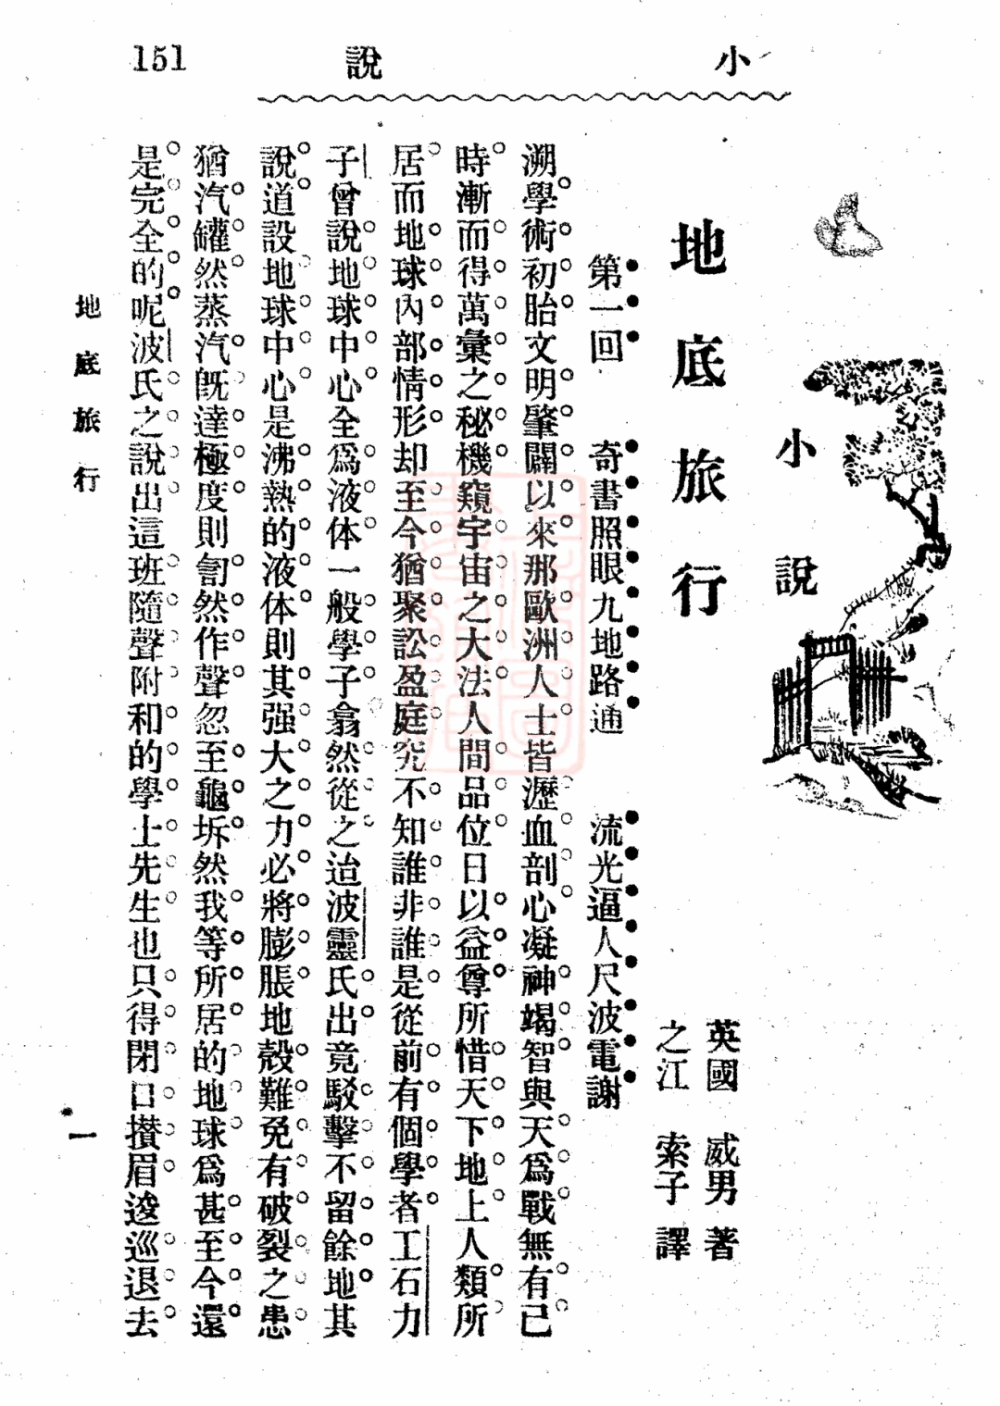 小說
151
小說
地底旅行
英國 威男 著
之江 索子 譯
第一回 奇書照眼九地路通 流光逼人尺波電謝
溯學術初胎文明肇闢以來那歐洲人士皆瀝血剖心凝神竭智與天爲戰無有已
時漸而得萬彙之秘機窺宇宙之大法人間品位日以益尊所惜天下地上人類所
居而地球內部情形却至今猶聚訟盈庭究不知誰非誰是從前有個學者工石力
子曾說地球中心全爲液体一般學子翕然從之迨波靈氏出竟駁擊不留餘地其
說道設地球中心是沸熱的液体則其强大之力必將膨脹地殼難免有破裂之患
猶汽罐然蒸汽旣達極度則訇然作聲忽至龜坼然我等所居的地球爲甚至今還
是完全的呢波氏之說出這班隨聲附和的學士先生也只得閉口攢眉逡巡退去
地底旅行
一